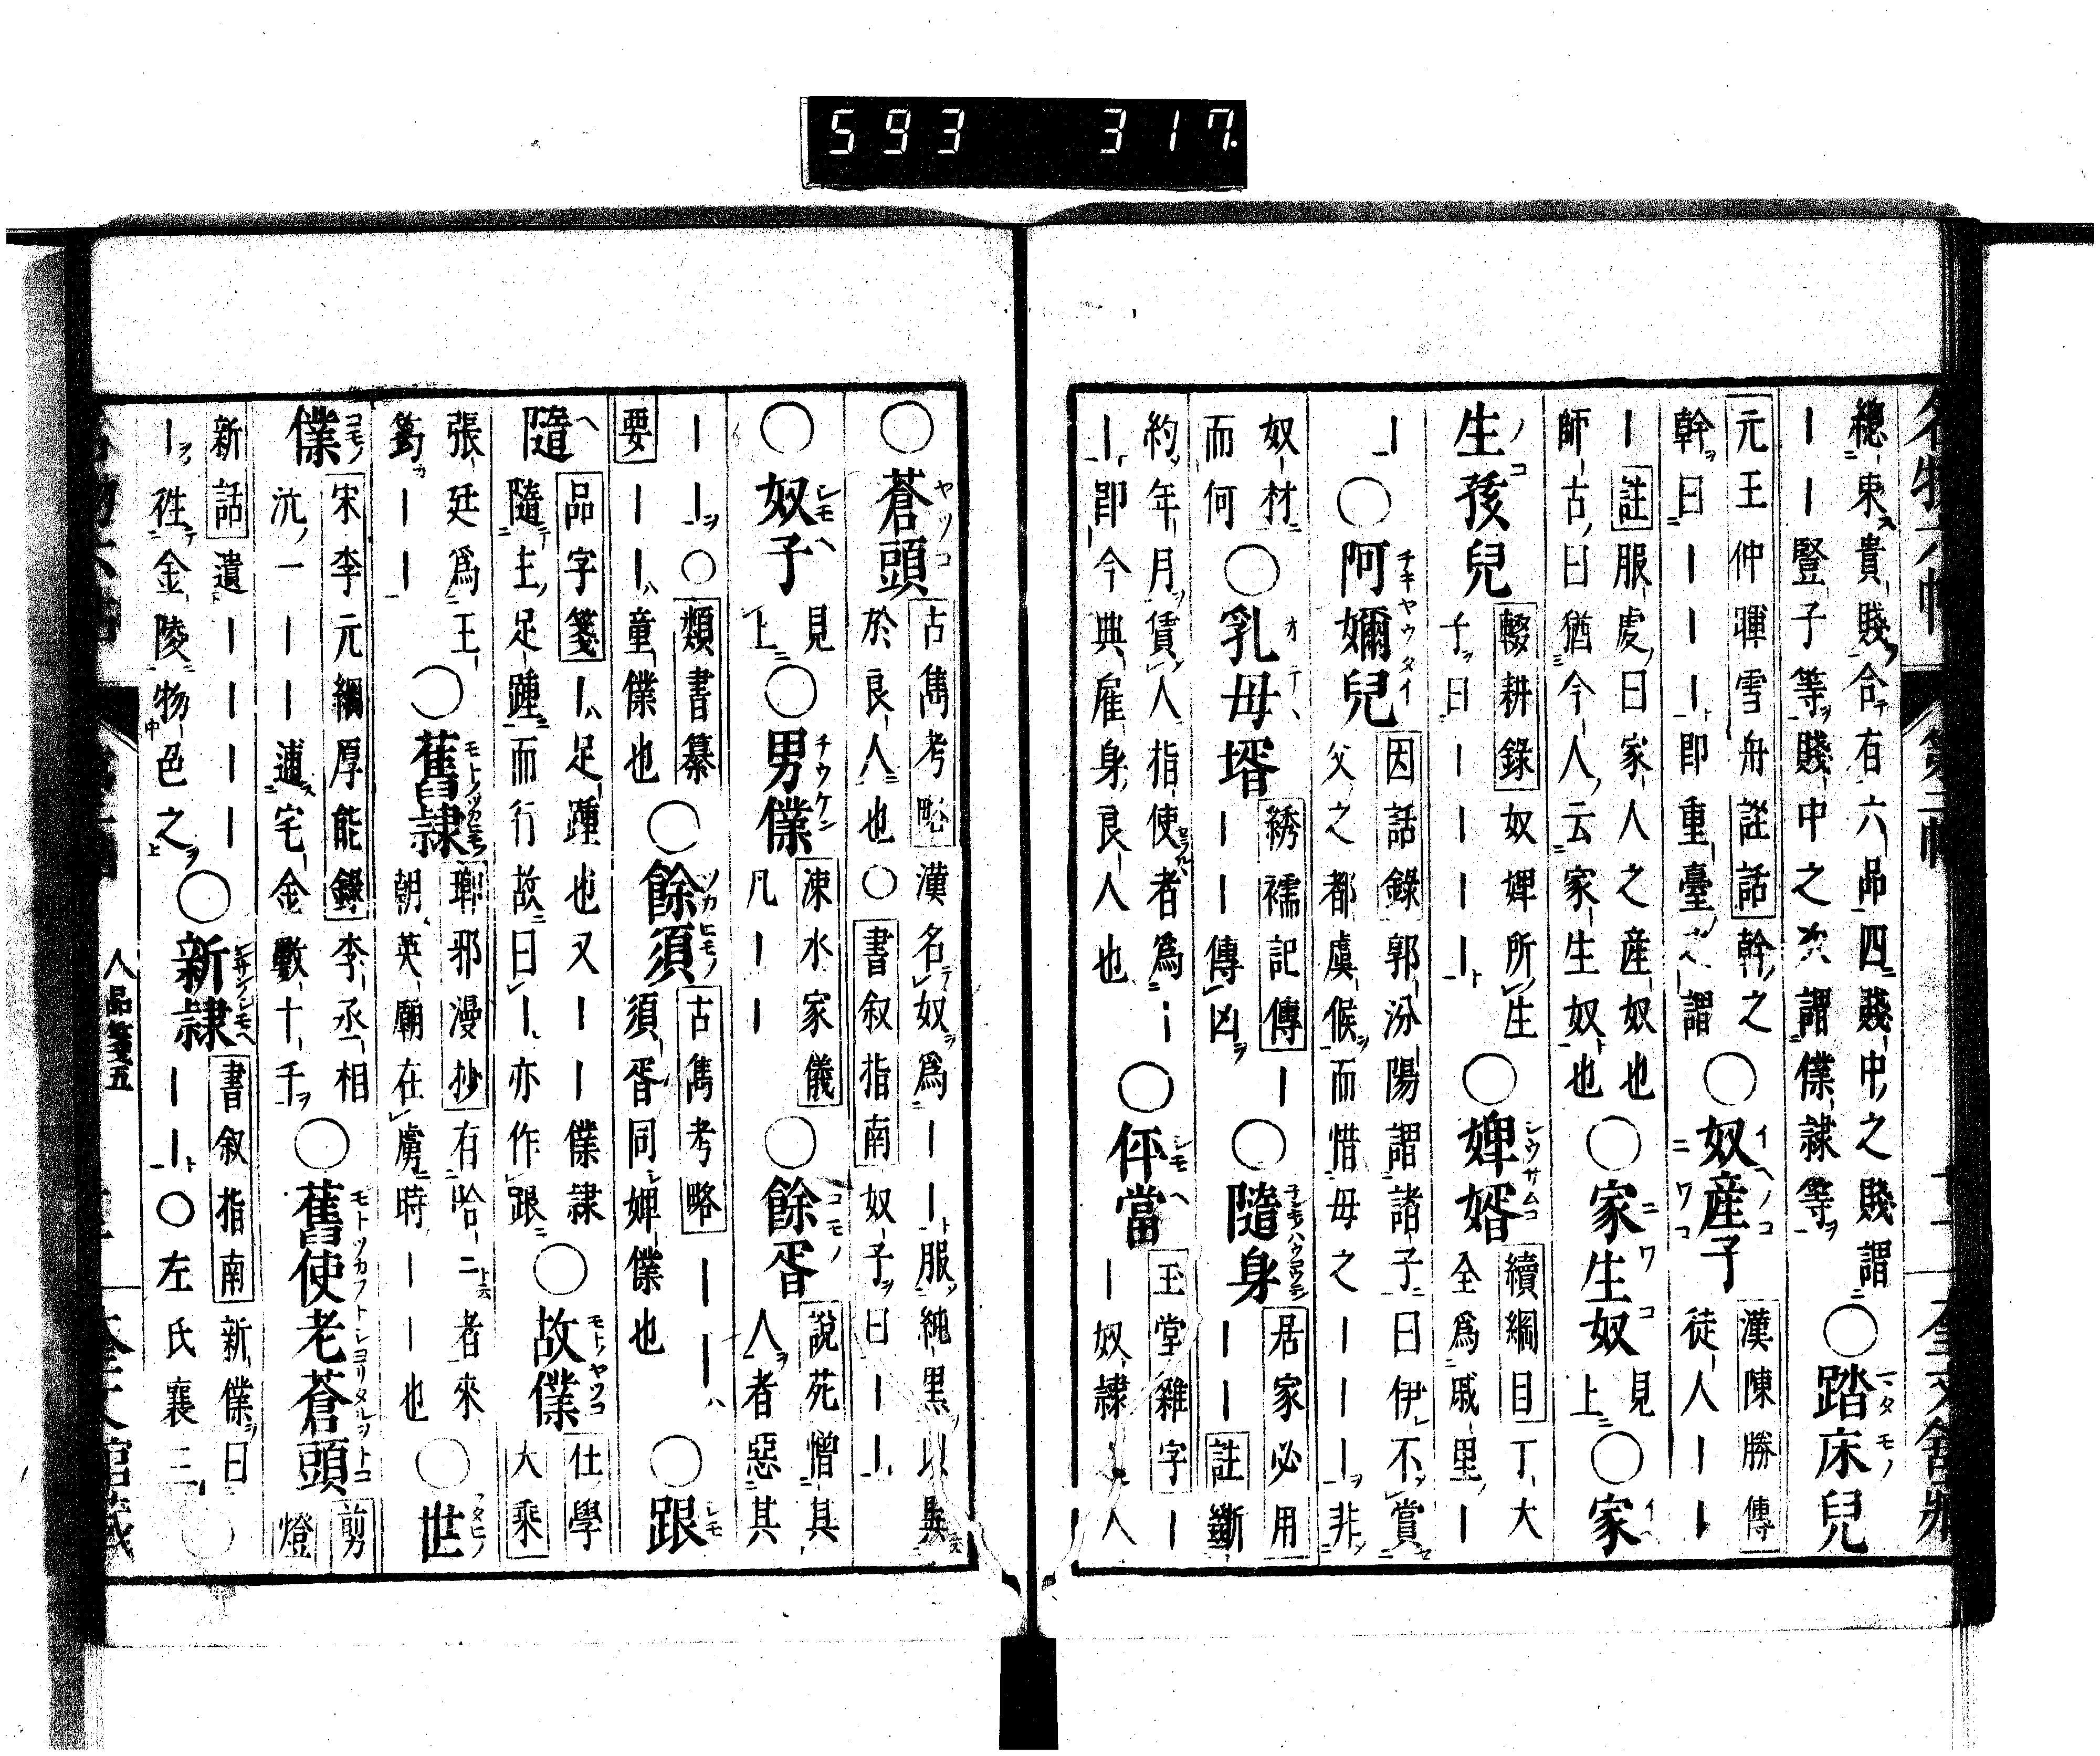 593 317.
總束貴賤合有六品四賤中之賤謂
｜｜豎子等賤中之次謂僕隷等
○踏床兒
元王仲暉雪舟脞話幹之
幹曰｜｜｜即重臺之謂
○奴産子
漢陳勝傳
徒人｜｜
｜註服虔曰家人之産奴也
師古曰猶今人云家生奴也
○家生奴
見
上
○家
生孩兒
輟耕錄奴婢所生
子曰｜｜｜｜
○婢婿
續綱目丁大
全爲戚里｜
｜
○阿嬭兒
因話錄郭汾陽謂諸子曰伊不賞
父之都虞候而惜母之｜｜｜非
奴材
而何
○乳母壻
綉襦記傳｜
｜｜｜傳凶
○隨身
居家必用
｜｜註斷
約年月賃人指使者爲｜
｜即今典雇身良人也
○伻當
玉堂雜字｜
｜奴隷之人
○蒼頭
古雋考略漢名奴爲｜｜服純黑以異
於良人也○書叙指南奴子曰｜｜
○奴子
見
上
○男僕
涑水家儀
凡｜｜
○餘胥
說苑憎其
人者惡其
｜｜○類書纂
要｜｜童僕也
○餘須
古雋考略｜｜
須胥同婢僕也
○跟
隨
品字箋｜足踵也又｜｜僕隷
隨主足踵而行故曰｜亦作跟
○故僕
仕學
大乘
張廷爲王
筠｜｜
○舊隷
瑯邪漫抄有哈二者來
朝英廟在虜時｜｜也
○世
僕
宋李元綱厚能錄李丞相
沆一｜｜逋宅金數十千
○舊使老蒼頭
剪
燈
新話遺｜｜｜｜
｜徃金陵物色之
○新隷
書叙指南新僕曰
｜｜○左氏襄三
人品箋五